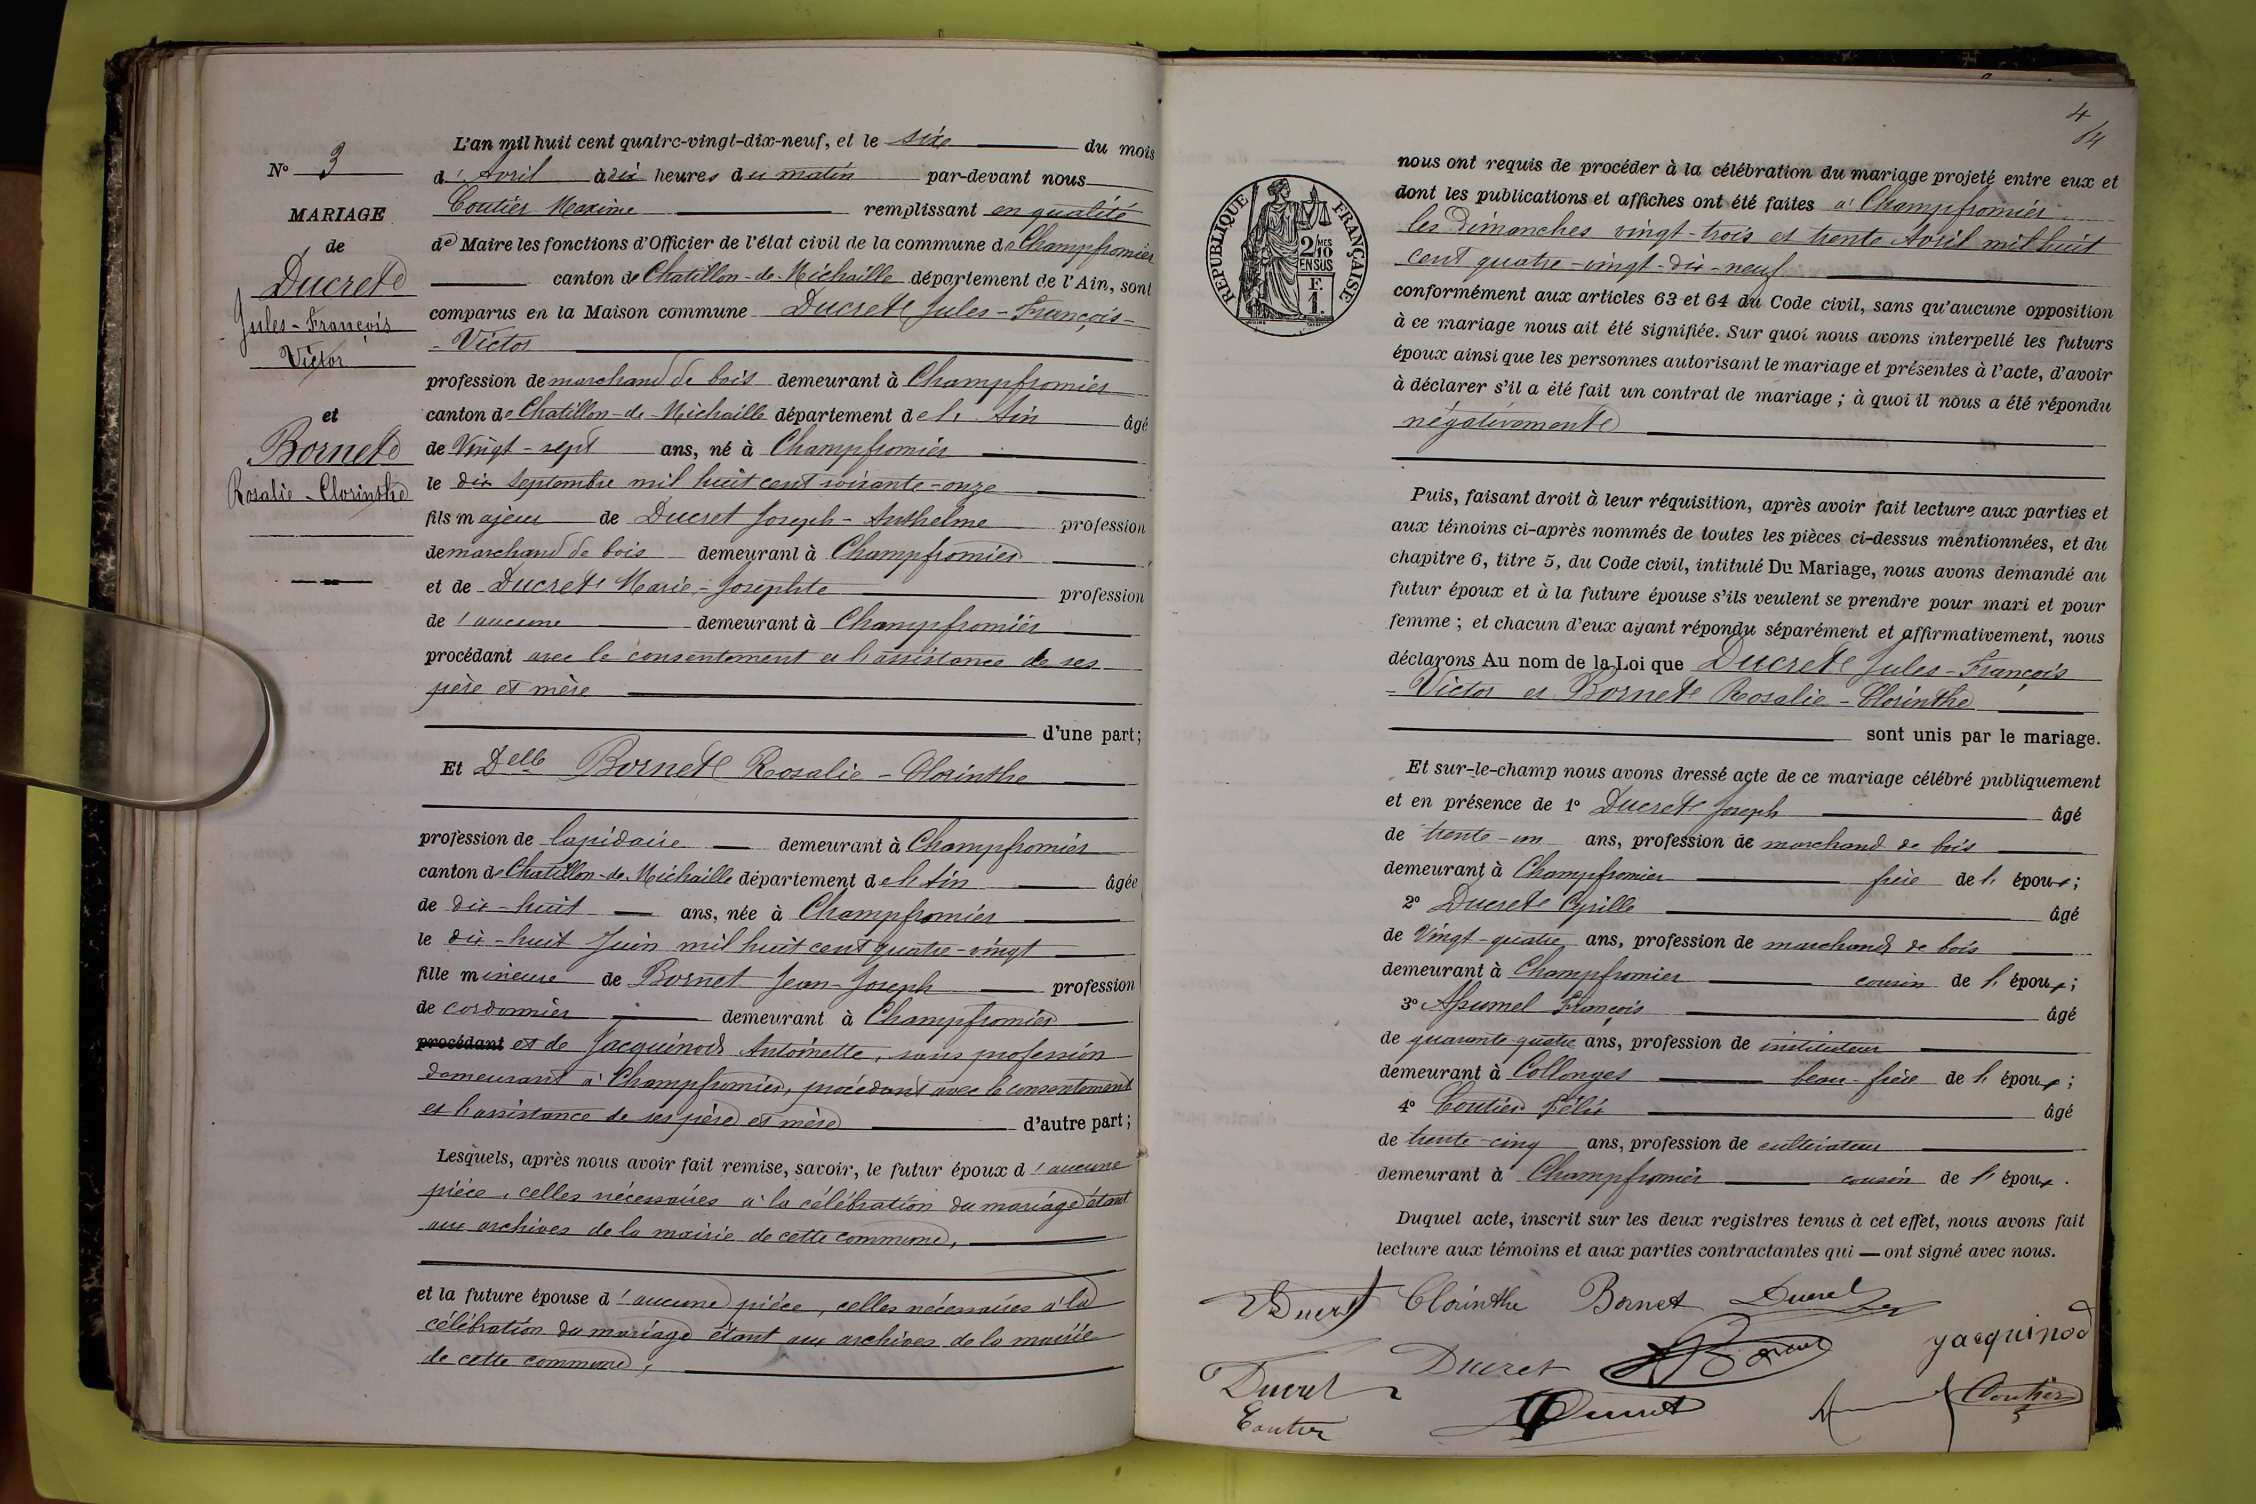 N° 3
MARIAGE
de
Ducret
Jules-François
Victor
et
Bornet
Rosalie-Clorinthe
L'an mil huit cent quatre-vingt-dix-neuf, et le six du mois
d'Avril à dix heures du matin par-devant nous
Coutier Maxime remplissant en qualité
de Maire les fonctions d'Officier de l'état civil de la commune de Champfromier
canton de Chatillon-de-Michaille département de l'Ain, sont
comparus en la Maison commune Ducret Jules-François-
-Victor
profession de marchand de bois demeurant à Champfromier
canton de Chatillon-de-Michaille département de l'Ain âgé
de Vingt-sept ans, né à Champfromier
le dix septembre mil huit cent soixante-onze
fils majeur de Ducret Joseph-Anthelme profession
de marchand de bois demeurant à Champfromier
et de Ducret Marie-Josephte profession
de d'aucune demeurant à Champfromier
procédant avec le consentement et l'assistance de ses
père et mère
d'une part;
Et Delle Bornet Rosalie-Clorinthe
profession de lapidaire demeurant à Champfromier
canton de Chatillon-de-Michaille département de l'Ain âgée
de dix-huit ans, née à Champfromier
le dix-huit Juin mil huit cent quatre-vingt
fille mineure de Bornet Jean-Joseph profession
de cordonnier demeurant à Champfromier
procédant et de Jacquinod Antoinette, sans profession
demeurant à Champfromier, procédant avec le consentement
et l'assistance de ses père et mère d'autre part;
Lesquels, après nous avoir fait remise, savoir, le futur époux d'aucune
pièce, celles nécessaires à la célébration du mariage étant
aux archives de la mairie de cette commune,
et la future épouse d'aucune pièce, celles nécessaires à la
célébration du mariage étant aux archives de la mairie
de cette commune,
4
RÉPUBLIQUE FRANÇAISE
2/MES
10
EN SUS
F.
1.
nous ont requis de procéder à la célébration du mariage projeté entre eux et
dont les publications et affiches ont été faites à Champfromier
les dimanches vingt-trois et trente Avril mil huit
cent quatre-vingt-dix-neuf
conformément aux articles 63 et 64 du Code civil, sans qu'aucune opposition
à ce mariage nous ait été signifiée. Sur quoi nous avons interpellé les futurs
époux ainsi que les personnes autorisant le mariage et présentes à l'acte, d'avoir
à déclarer s'il a été fait un contrat de mariage; à quoi il nous a été répondu
négativement
Puis, faisant droit à leur réquisition, après avoir fait lecture aux parties et
aux témoins ci-après nommés de toutes les pièces ci-dessus mentionnées, et du
chapitre 6, titre 5, du Code civil, intitulé Du Mariage, nous avons demandé au
futur époux et à la future épouse s'ils veulent se prendre pour mari et pour
femme; et chacun d'eux ayant répondu séparément et affirmativement, nous
déclarons Au nom de la Loi que Ducret Jules-François
-Victor et Bornet Rosalie-Clorinthe
sont unis par le mariage.
Et sur-le-champ nous avons dressé acte de ce mariage célébré publiquement
et en présence de 1° Ducret Joseph âgé
de trente-un ans, profession de marchand de bois
demeurant à Champfromier frère de l'époux;
2° Ducret Cyrille âgé
de Vingt-quatre ans, profession de marchand de bois
demeurant à Champfromier cousin de l'époux;
3° François âgé
de quarante quatre ans, profession de instituteur
demeurant à Collonges beau-frère de l'époux;
4° Coutier Félix âgé
de trente-cinq ans, profession de cultivateur
demeurant à Champfromier cousin de l'époux.
Duquel acte, inscrit sur les deux registres tenus à cet effet, nous avons fait
lecture aux témoins et aux parties contractantes qui — ont signé avec nous.
VDucret Clorinthe Bornet Ducret
Ducret Bornet Jacquinod
Ducret Ducret Coutier
Coutier